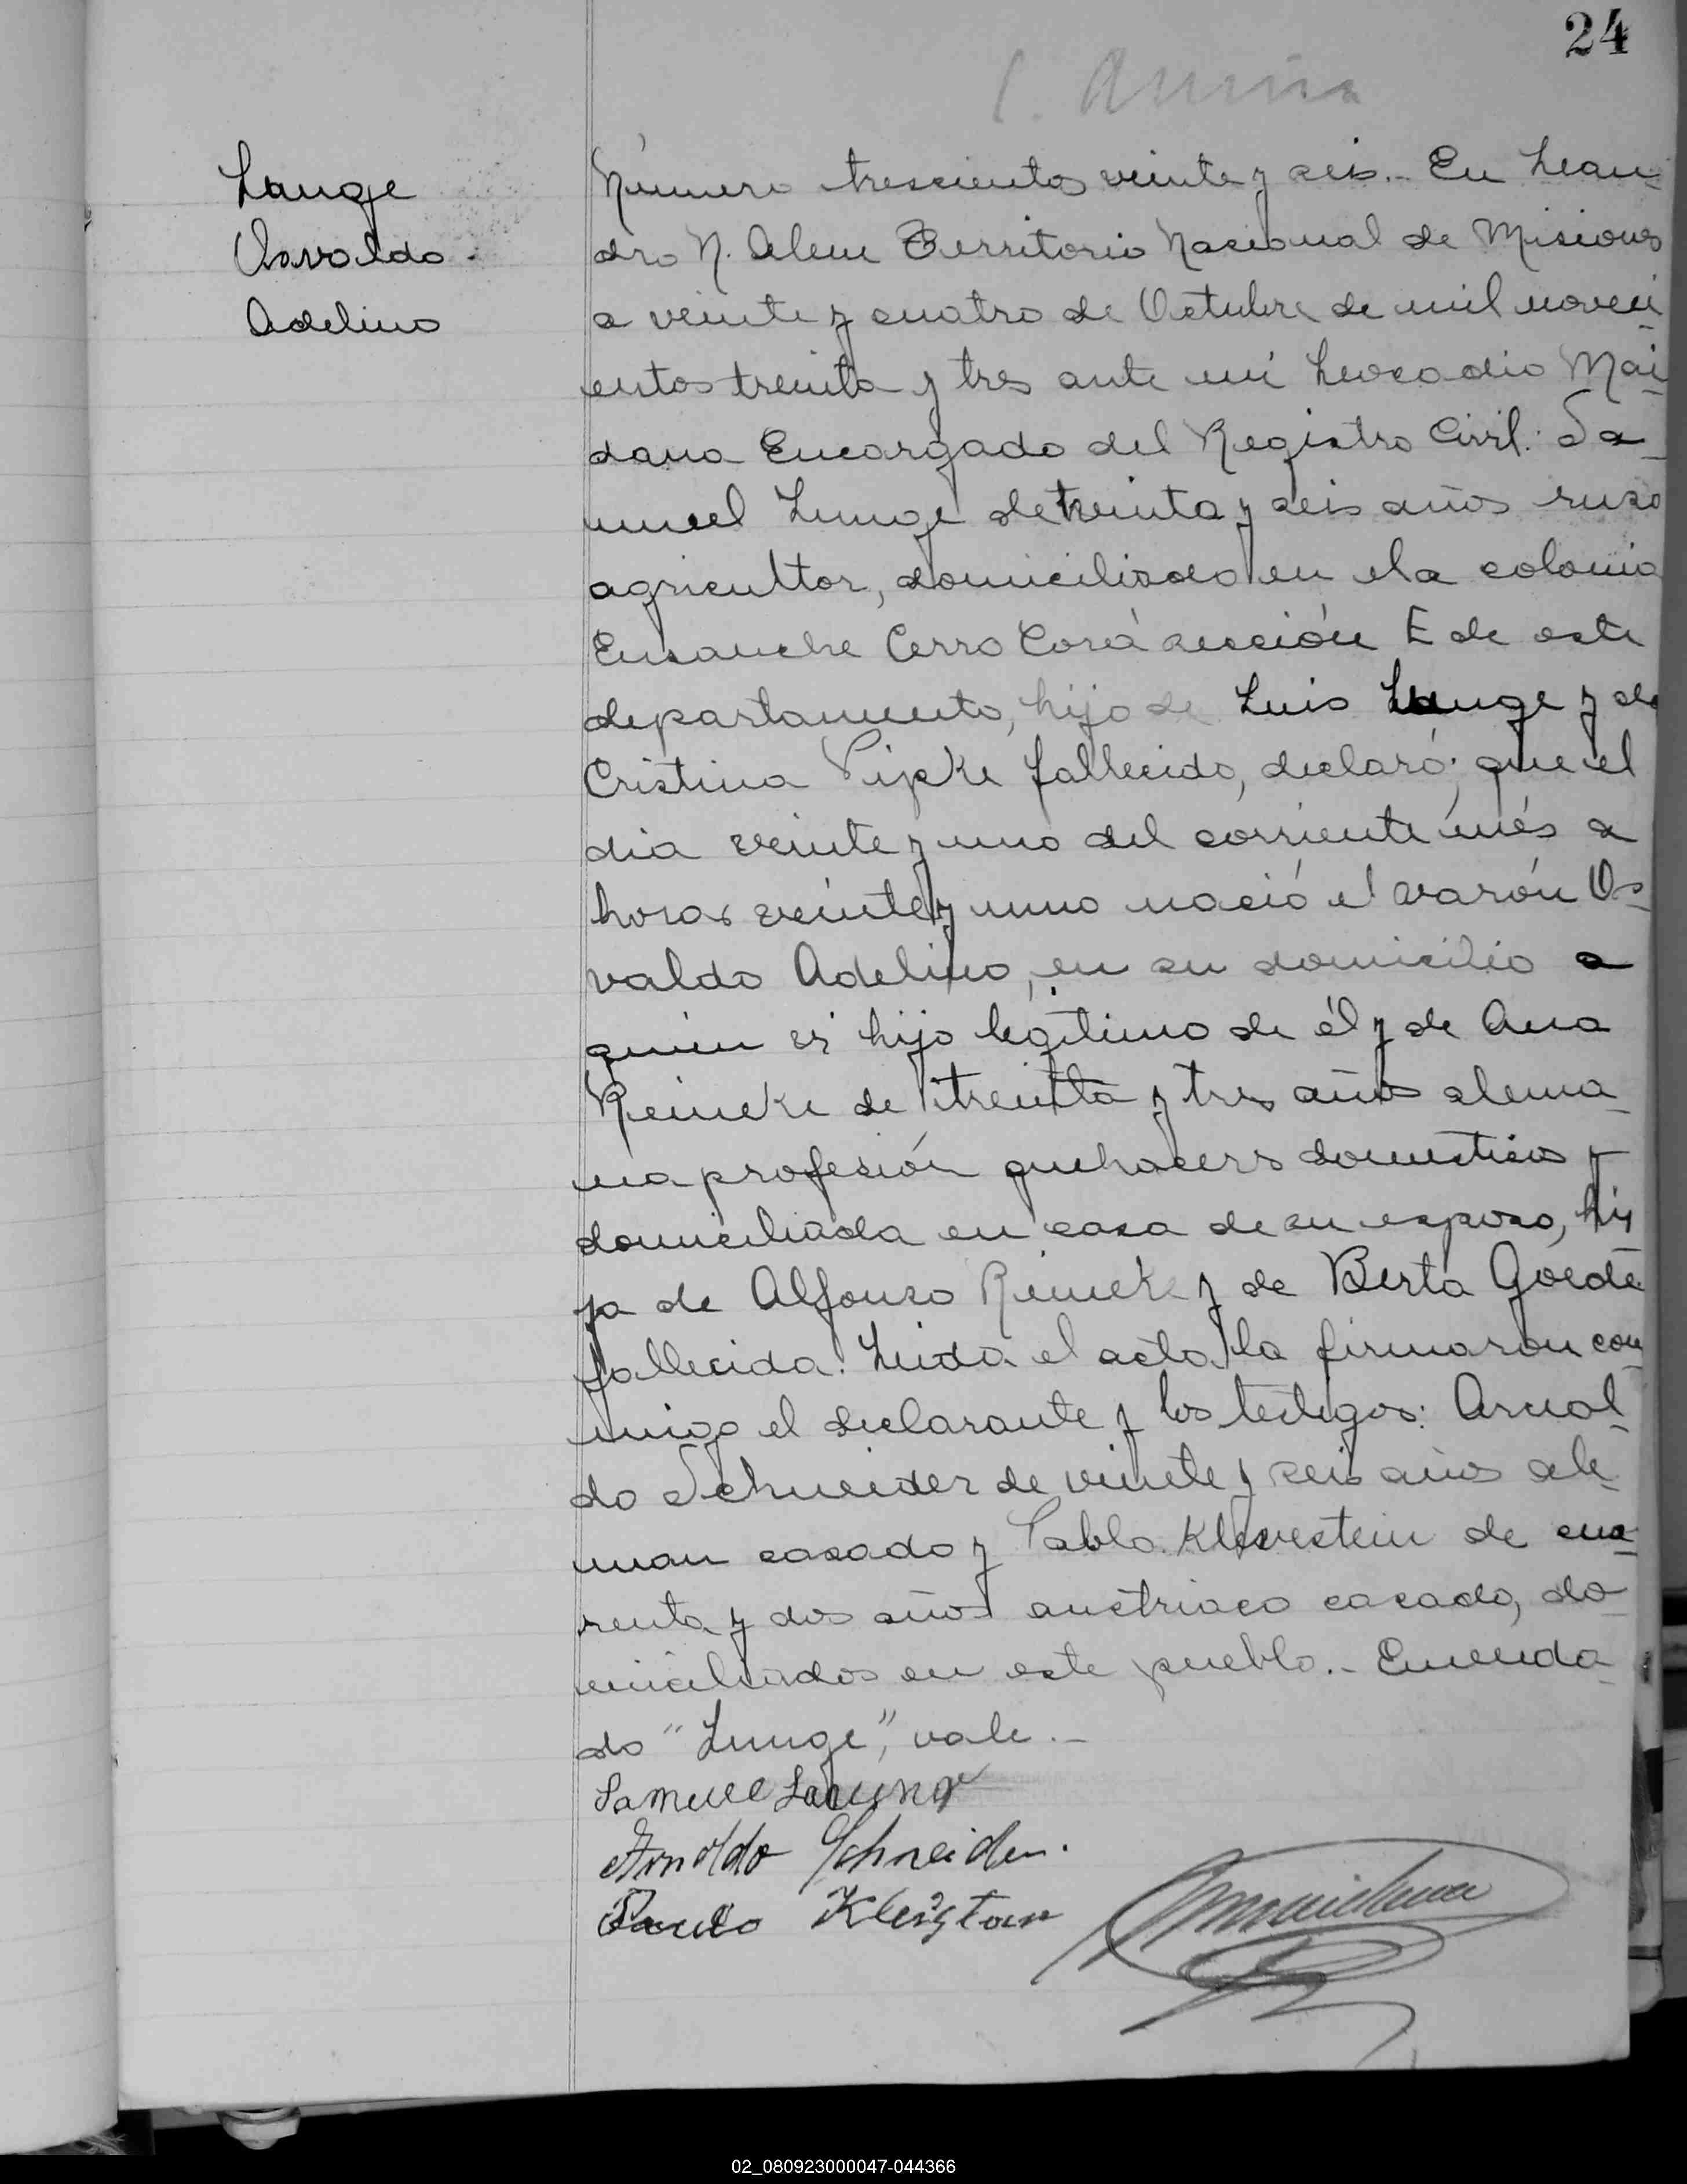 24
Lange
Osvaldo
Adelino
Número trescientos veinte y seis.- En Lean-
dro N. Alem Territorio Nacional de Misiones
a veinte y cuatro de Octubre de mil noveci-
entos treinta y tres ante mí Leocadio Mai-
dana Encargado del Registro Civil: Sa-
muel Lunge de treinta y seis años ruso
agricultor, domiciliado en el a colonia
Ensanche Cerro Corá sección E de este
departamento, hijo de Luis Lunge y de
Cristina Pipke fallecido, declaró: que el
dia veinte y uno del corriente més a
horas veinte y uno nació el varón Os-
valdo Adelino, en su domicilio a
quien es hijo legítimo de él y de Ana
Reineke de treinta y tres años alema-
na profesión quehaceres domesticos y
domiciliada en casa de su esposo, hi-
ja de Alfonso Reineke y de Berta Goede
fallecida. Leida el acta la firmaron con
migo el declarante y los testigos: Arnol-
do Schneider de veinte y seis años ale-
man casado y Pablo Kleverstein de cua-
renta y dos años austriaco casado, do-
miciliados en este pueblo.- Emenda-
do "Lunge", vale.-
Samuel
Arnoldo Schneider.
Paulo
02_080923000047-044366